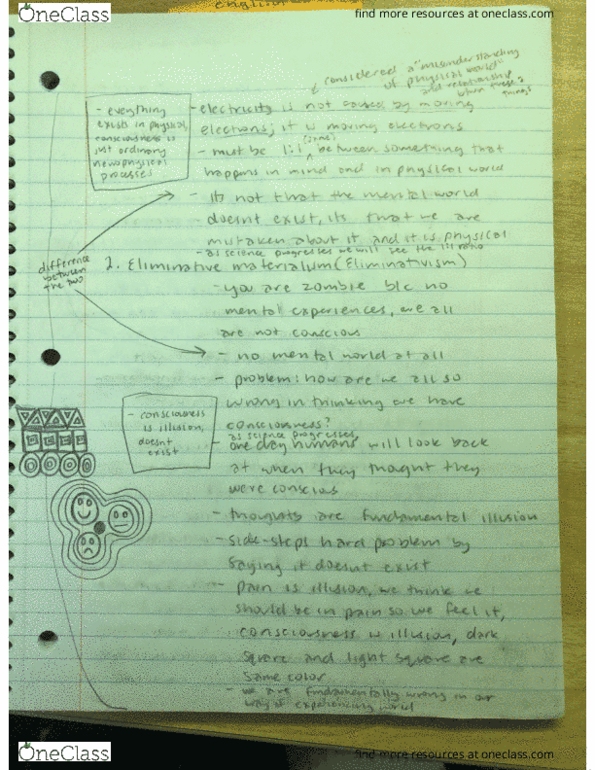 OneClass
find more resources at oneclass.com
considered a "misunderstanding
of physical world"
and relationship
when these
things
- everything
exists in physical,
consciousness is
just ordinary
neurophysical
processes
- electricity is not caused by moving
electrons; it is moving electrons
- must be 1:1 between something that
happens in mind and in physical world
- its not that the mental world
doesnt exist, its that we are
mistaken about it and it is physical
- as science progresses we will see the 1:1 ratio
difference
between
the two
2. Eliminative materialism (Eliminativism)
- you are zombie b/c no
mental experiences, we all
are not conscious
- no mental world at all
- problem: how are we all so
wrong in thinking we have
consciousness?
- consciousness
is illusion,
doesnt
exist
as science progresses,
- one day humans will look back
at when they thought they
were conscious
- thoughts are fundamental illusion
- side-steps hard problem by
saying it doesnt exist
- pain is illusion, we think we
should be in pain so we feel it,
consciousness is illusion, dark
square and light square are
same color
- we are fundamentally wrong in our
way of experiencing world
OneClass
find more resources at oneclass.com